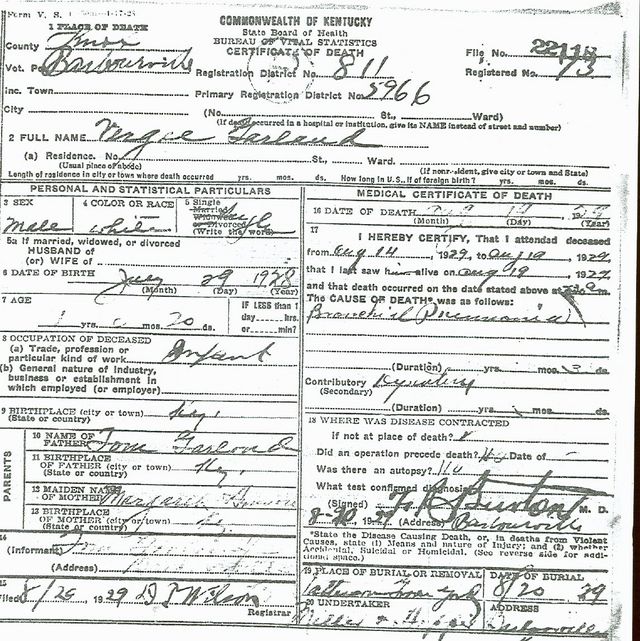 Form V. S.
COMMONWEALTH OF KENTUCKY
State Board of Health
BUREAU OF VITAL STATISTICS
CERTIFICATE OF DEATH
1 PLACE OF DEATH
County Knox
Vot. Barbourville
Inc. Town
City
File No. 22118
Registered No. 73
Registration District No. 811
Primary Registration District No. 5966
(No. St., Ward)
(If death occurred in a hospital or institution, give its NAME instead of street and number)
2 FULL NAME Vergie Garland
(a) Residence. No. St., Ward.
(Usual place of abode) (If nonresident, give city or town and State)
Length of residence in city or town where death occurred yrs. mos. ds. How long in U. S., if of foreign birth? yrs. mos. ds.
PERSONAL AND STATISTICAL PARTICULARS
3 SEX
Male
4 COLOR OR RACE
white
5 Single
Married
Widowed
or Divorced
(Write the word)
5a If married, widowed, or divorced
HUSBAND of
(or) WIFE of
6 DATE OF BIRTH July 29 1928
(Month) (Day) (Year)
7 AGE
1 yrs. mos. 20 ds.
IF LESS than 1
day hrs.
or min?
8 OCCUPATION OF DECEASED
(a) Trade, profession or
particular kind of work Infant
(b) General nature of industry,
business or establishment in
which employed (or employer)
9 BIRTHPLACE (city or town) Ky.
(State or country)
PARENTS
10 NAME OF
FATHER Tom Garland
11 BIRTHPLACE
OF FATHER (city or town) Ky.
(State or country)
12 MAIDEN NAME
OF MOTHER Margaret
13 BIRTHPLACE
OF MOTHER (city or town) Ky.
(State or country)
14
(Informant) Tom
(Address)
15
Filed 8/20 1929 Wilson
Registrar
MEDICAL CERTIFICATE OF DEATH
16 DATE OF DEATH 19 1929
(Month) (Day) (Year)
17
I HEREBY CERTIFY, That I attended deceased
from Aug 14, 1929, to Aug 19, 1929
that I last saw him alive on Aug 19, 1929
and that death occurred on the date stated above at
The CAUSE OF DEATH* was as follows:
Bronchial Pneumonia
(Duration) yrs. mos. 3 ds.
Contributory Dysentery
(Secondary)
(Duration) yrs. mos. ds.
18 WHERE WAS DISEASE CONTRACTED
if not at place of death?
Did an operation precede death? No Date of
Was there an autopsy? No
What test confirmed diagnosis?
(Signed) Burton M. D.
8-20 1929 (Address) Barbourville
*State the Disease Causing Death, or, in deaths from Violent
Causes, state (1) Means and nature of Injury; and (2) whether
Accidental, Suicidal or Homicidal. (See reverse side for addi-
tional space.)
19 PLACE OF BURIAL OR REMOVAL
DATE OF BURIAL
8/20 29
20 UNDERTAKER
ADDRESS
Barbourville